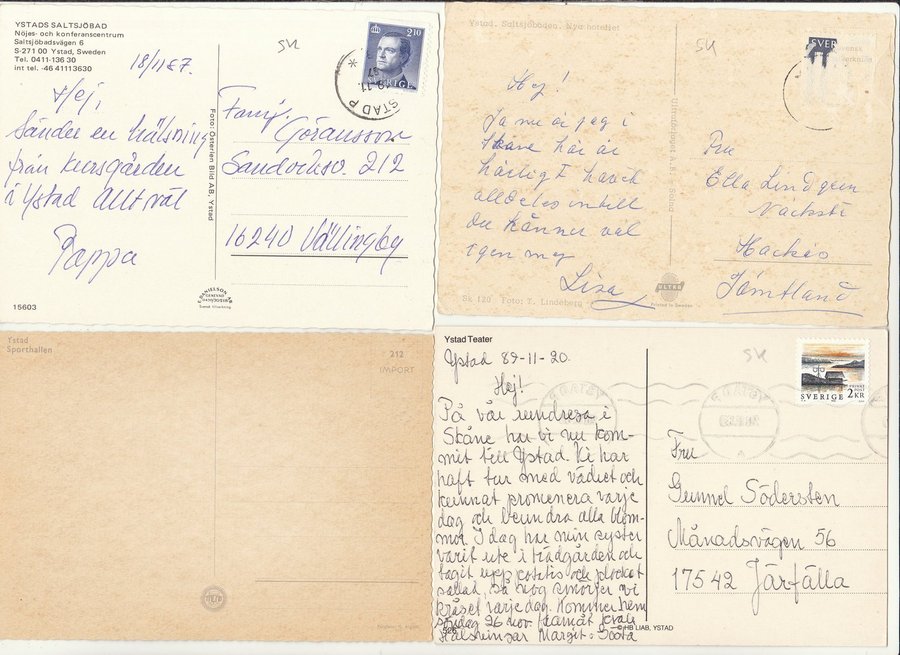 YSTADS SALTSJÖBAD
Nöjes- och konferanscentrum
Saltsjöbadsvägen 6
S-271 00 Ystad, Sweden
Tel. 0411-136 30
int tel. -46 41113630
18/11 87.
SK
2.10
SVERIGE
YSTAD P
Hej,
Sänder en hälsning
från kursgården
i Ystad Allt väl
Pappa
15603
Foto: Österlen Bild AB, Ystad
Famj.
Göransson
Sandviksv. 212
16240 Vällingby
Ystad. Saltsjöbaden. Nya hotellet
SK
SVER
Hej!
Ja nu är jag i
Skåne här är
härligt havet
alldeles intill
Du känner väl
igen mej
Lisa
Ultraförlaget A.B. Solna
Fru
Ella Lindgren
Hackås
Jämtland
Sk 120 Foto: T. Lindeberg
ULTRA
Printed in Sweden
Ystad
Sporthallen
212
IMPORT
Ystad Teater
Ystad 89-11-20.
Hej!
På vår rundresa i
Skåne har vi nu kom-
mit till Ystad. Vi har
haft tur med vädret och
kunnat promenera varje
dag och beundra alla blom-
mor. I dag har min syster
varit ute i trädgården och
tagit upp potatis och plockat
sallad, så nog smörjer vi
kråset varje dag. Kommer hem
söndag 26 nov.
Hälsningar Margit o Gösta
526
© HB LIAB, YSTAD
SK
SVERIGE 2KR
Fru
Gunnel Södersten
Månadsvägen 56
175 42 Järfälla